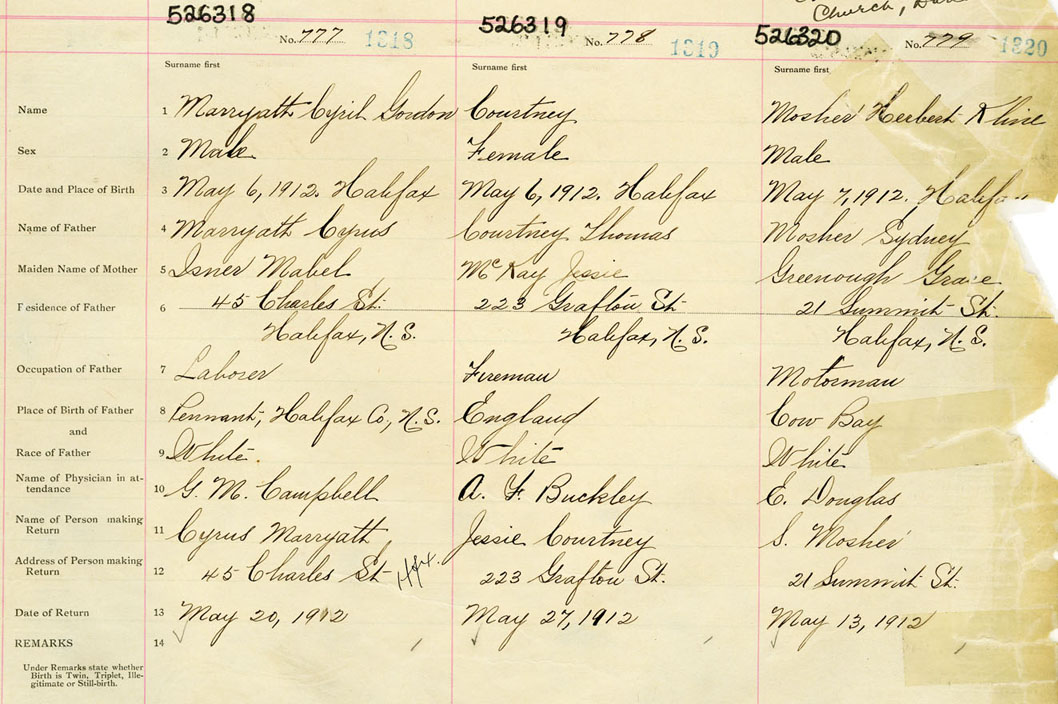 Church,
526318 526319 526320
No. 777 1318 No. 778 1319 No. 779 1320
Surname first Surname first Surname first
Name 1 Marryath Cyril Gordon Courtney Mosher Herbert Kline
Sex 2 Male Female Male
Date and Place of Birth 3 May 6, 1912. Halifax May 6, 1912. Halifax May 7, 1912. Halifax
Name of Father 4 Marryath Cyrus Courtney Thomas Mosher Sydney
Maiden Name of Mother 5 Isner Mabel McKay Jessie Greenough Grace
Residence of Father 6 45 Charles St. 223 Grafton St. 21 Summit St.
Halifax, N.S. Halifax, N.S. Halifax, N.S.
Occupation of Father 7 Laborer Fireman Motorman
Place of Birth of Father 8 Pennant, Halifax Co., N.S. England Cow Bay
and
Race of Father 9 White White White
Name of Physician in at-
tendance 10 G. M. Campbell A. F. Buckley E. Douglas
Name of Person making
Return 11 Cyrus Marryath Jessie Courtney S. Mosher
Address of Person making
Return 12 45 Charles St Hfx. 223 Grafton St. 21 Summit St.
Date of Return 13 May 20, 1912 May 27, 1912 May 13, 1912
REMARKS 14
Under Remarks state whether
Birth is Twin, Triplet, Ille-
gitimate or Still-birth.